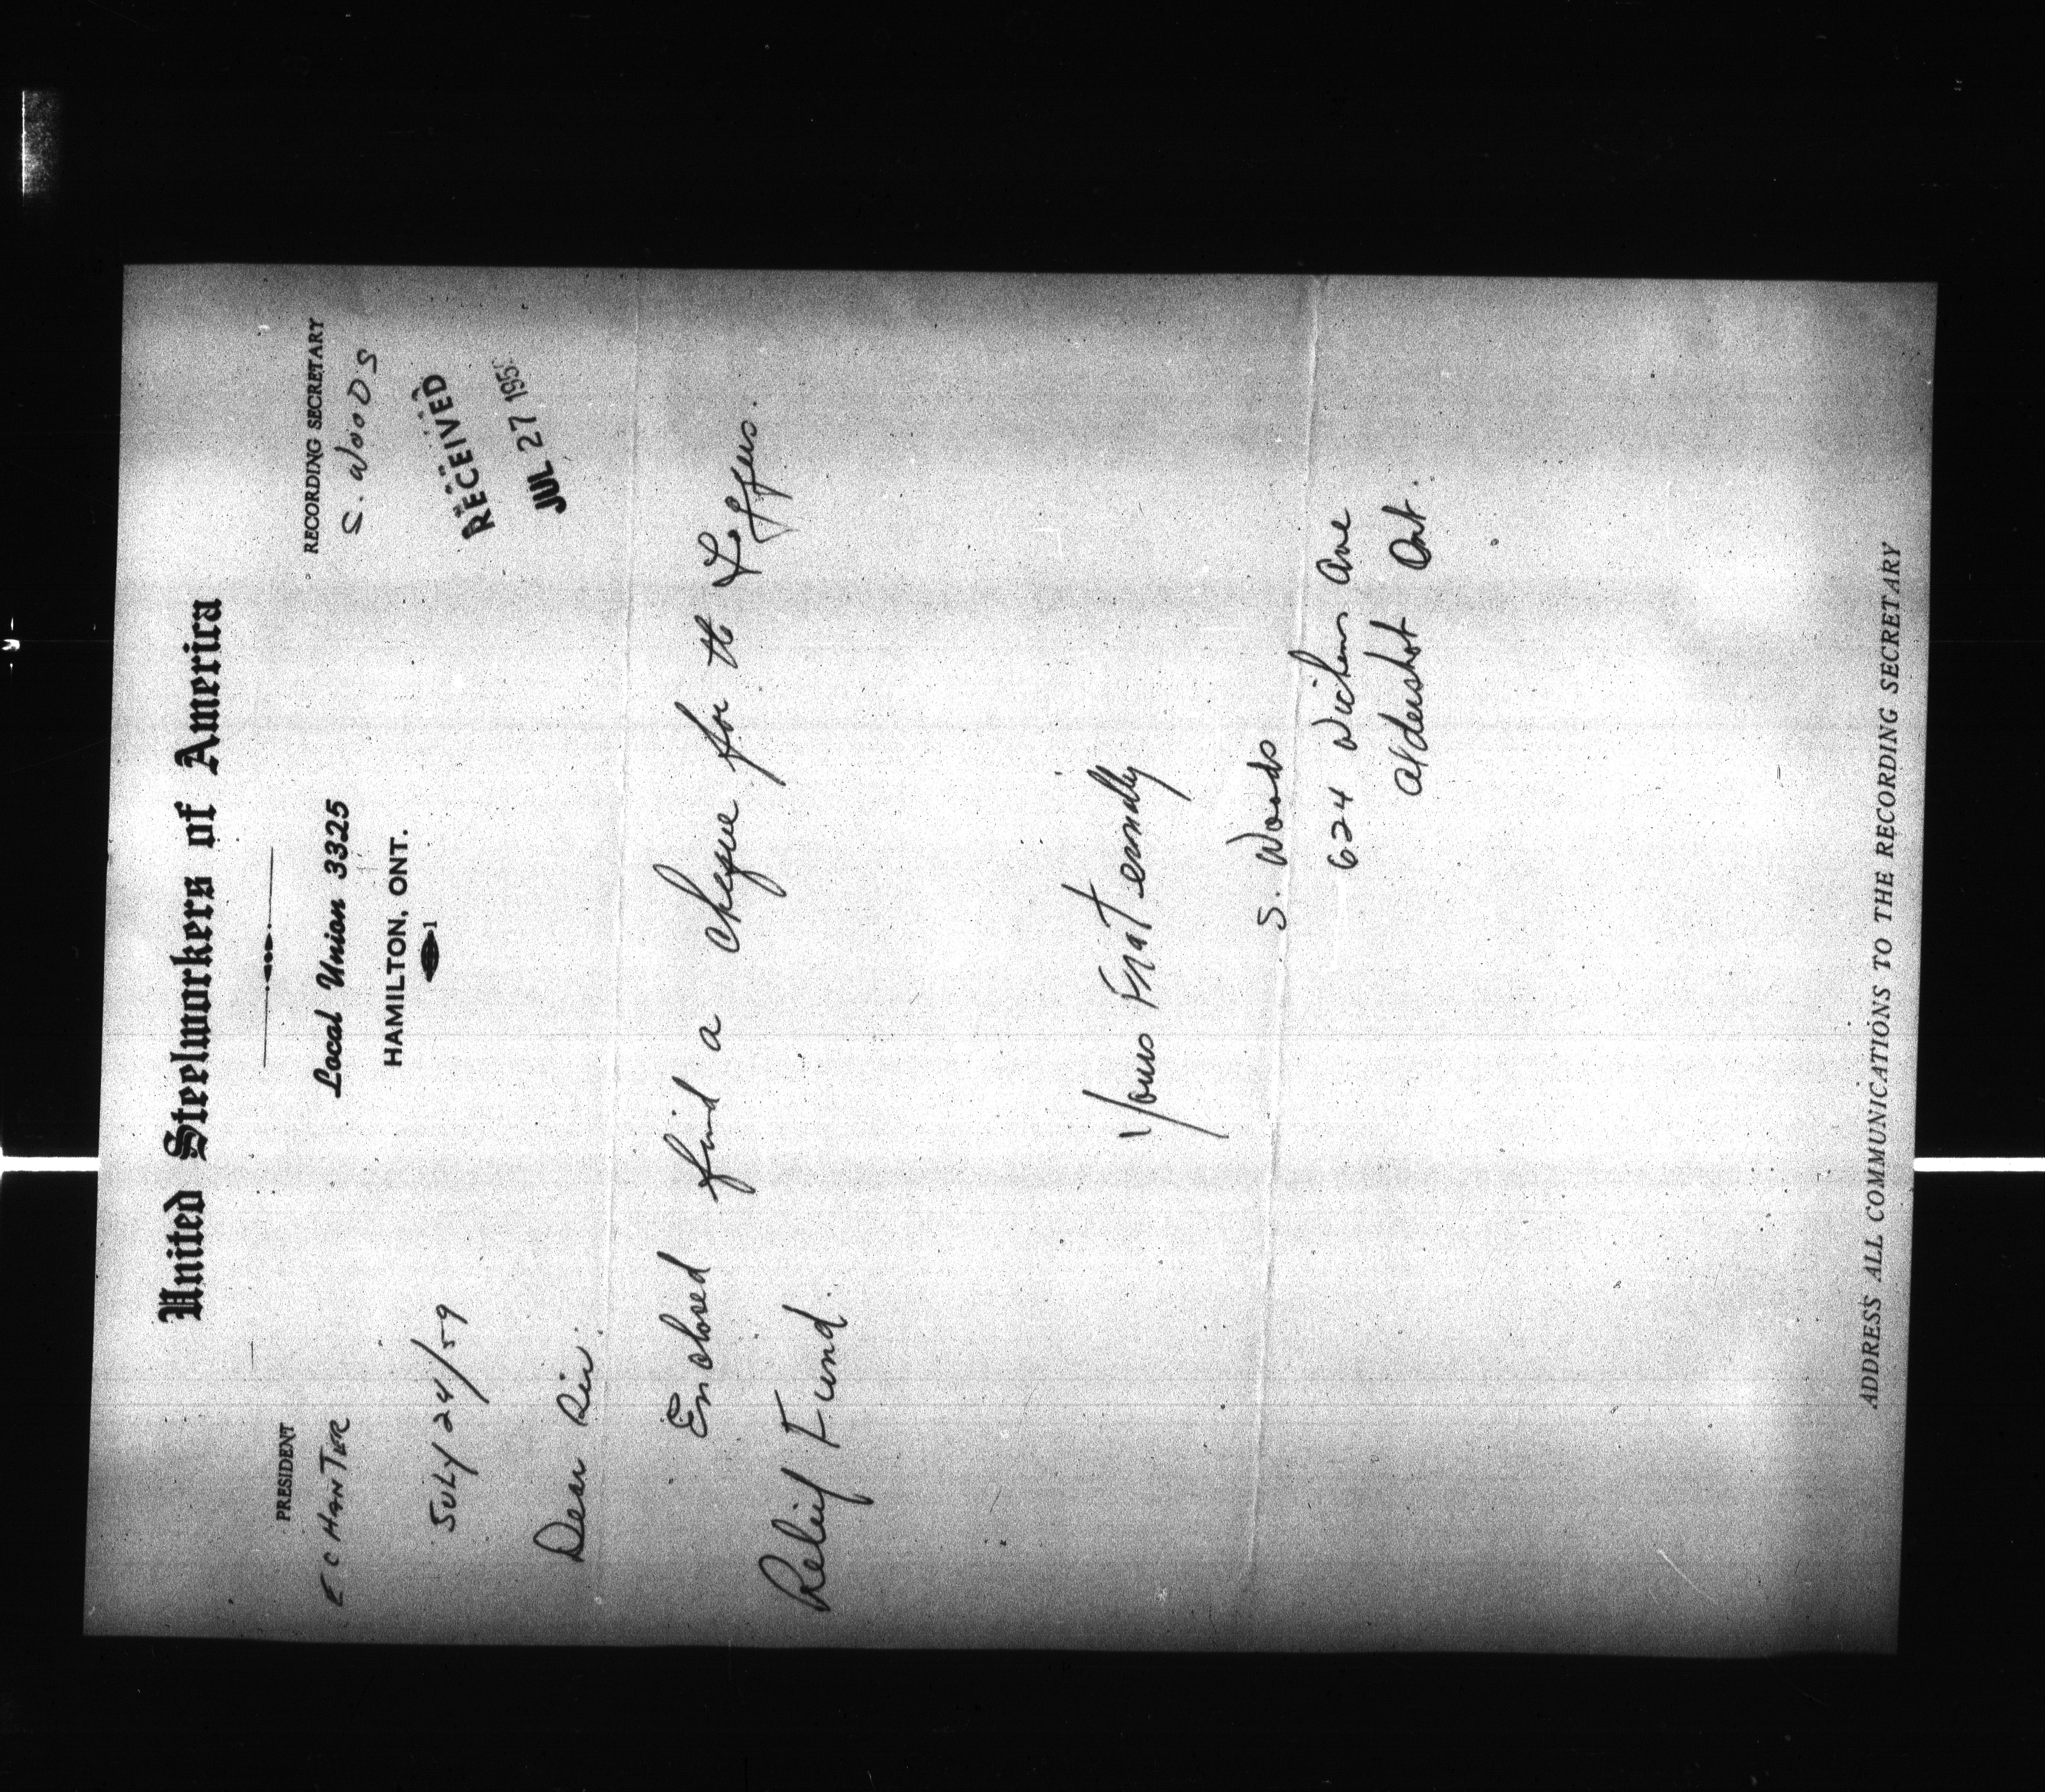 United Steelworkers of America
PRESIDENT
E C HANTER
Local Union 3325
HAMILTON, ONT.
RECORDING SECRETARY
S. WOODS
RECEIVED
JUL 27 195
JULY 24/59
Dear Sir.
Enclosed find a cheque for th Loggers.
Relief Fund.
Yours Fraternally
S. Woods
624 Ave
Aldershot Ont.
ADDRESS ALL COMMUNICATIONS TO THE RECORDING SECRETARY